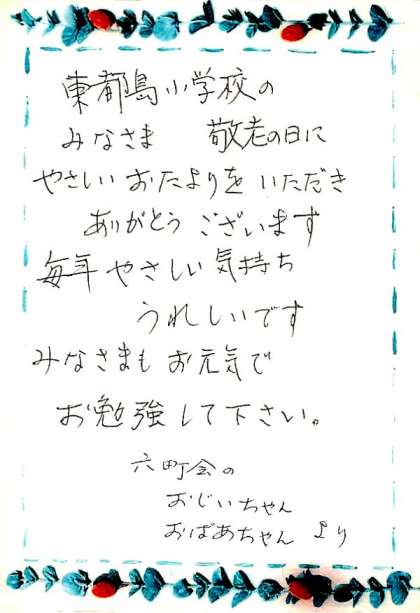 東都島小学校の
みなさま 敬老の日に
やさしいおたよりをいただき
ありがとうございます
毎年やさしい気持ち
うれしいです
みなさまもお元気で
お勉強して下さい。
六町会の
おじいちゃん
おばあちゃんより